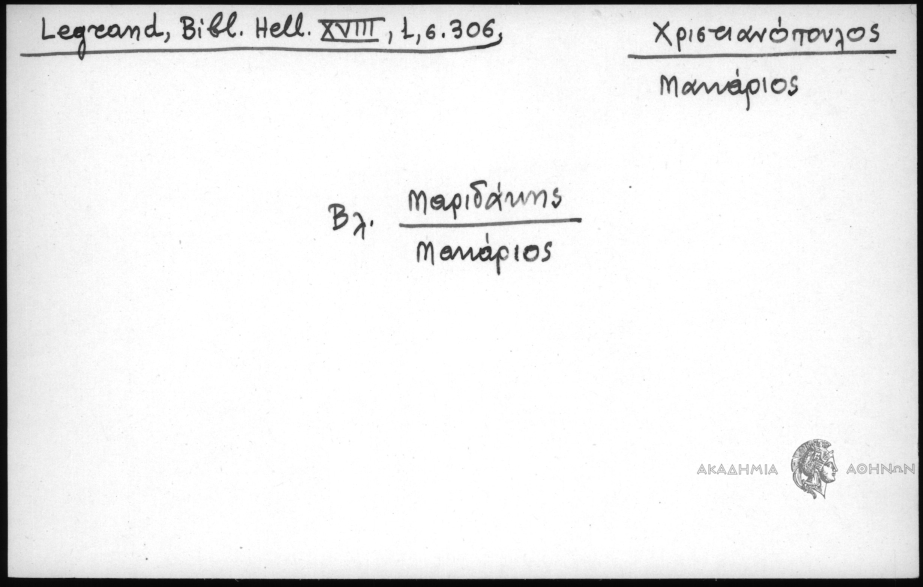 Legrand, Bibl. Hell. XVIII, 1, σ. 306,
Χριστιανόπουλος
Μακάριος
Βλ. Μαριδάκης
Μακάριος
ΑΚΑΔΗΜΙΑ ΑΘΗΝΩΝ